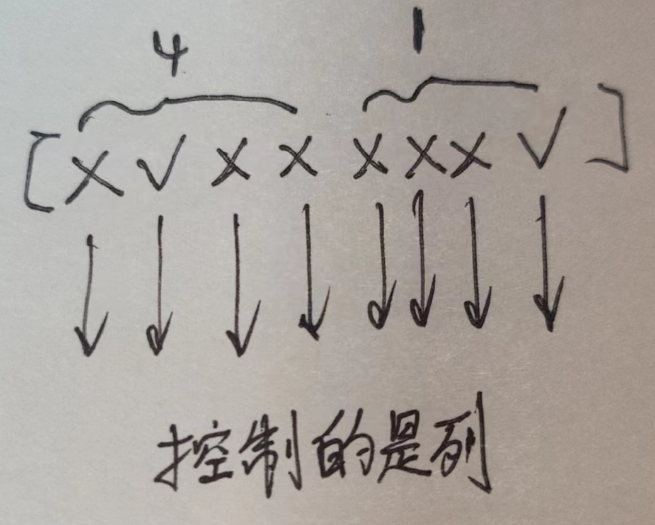 4 1
[ × ✓ × × × × × ✓ ]
控制的是列